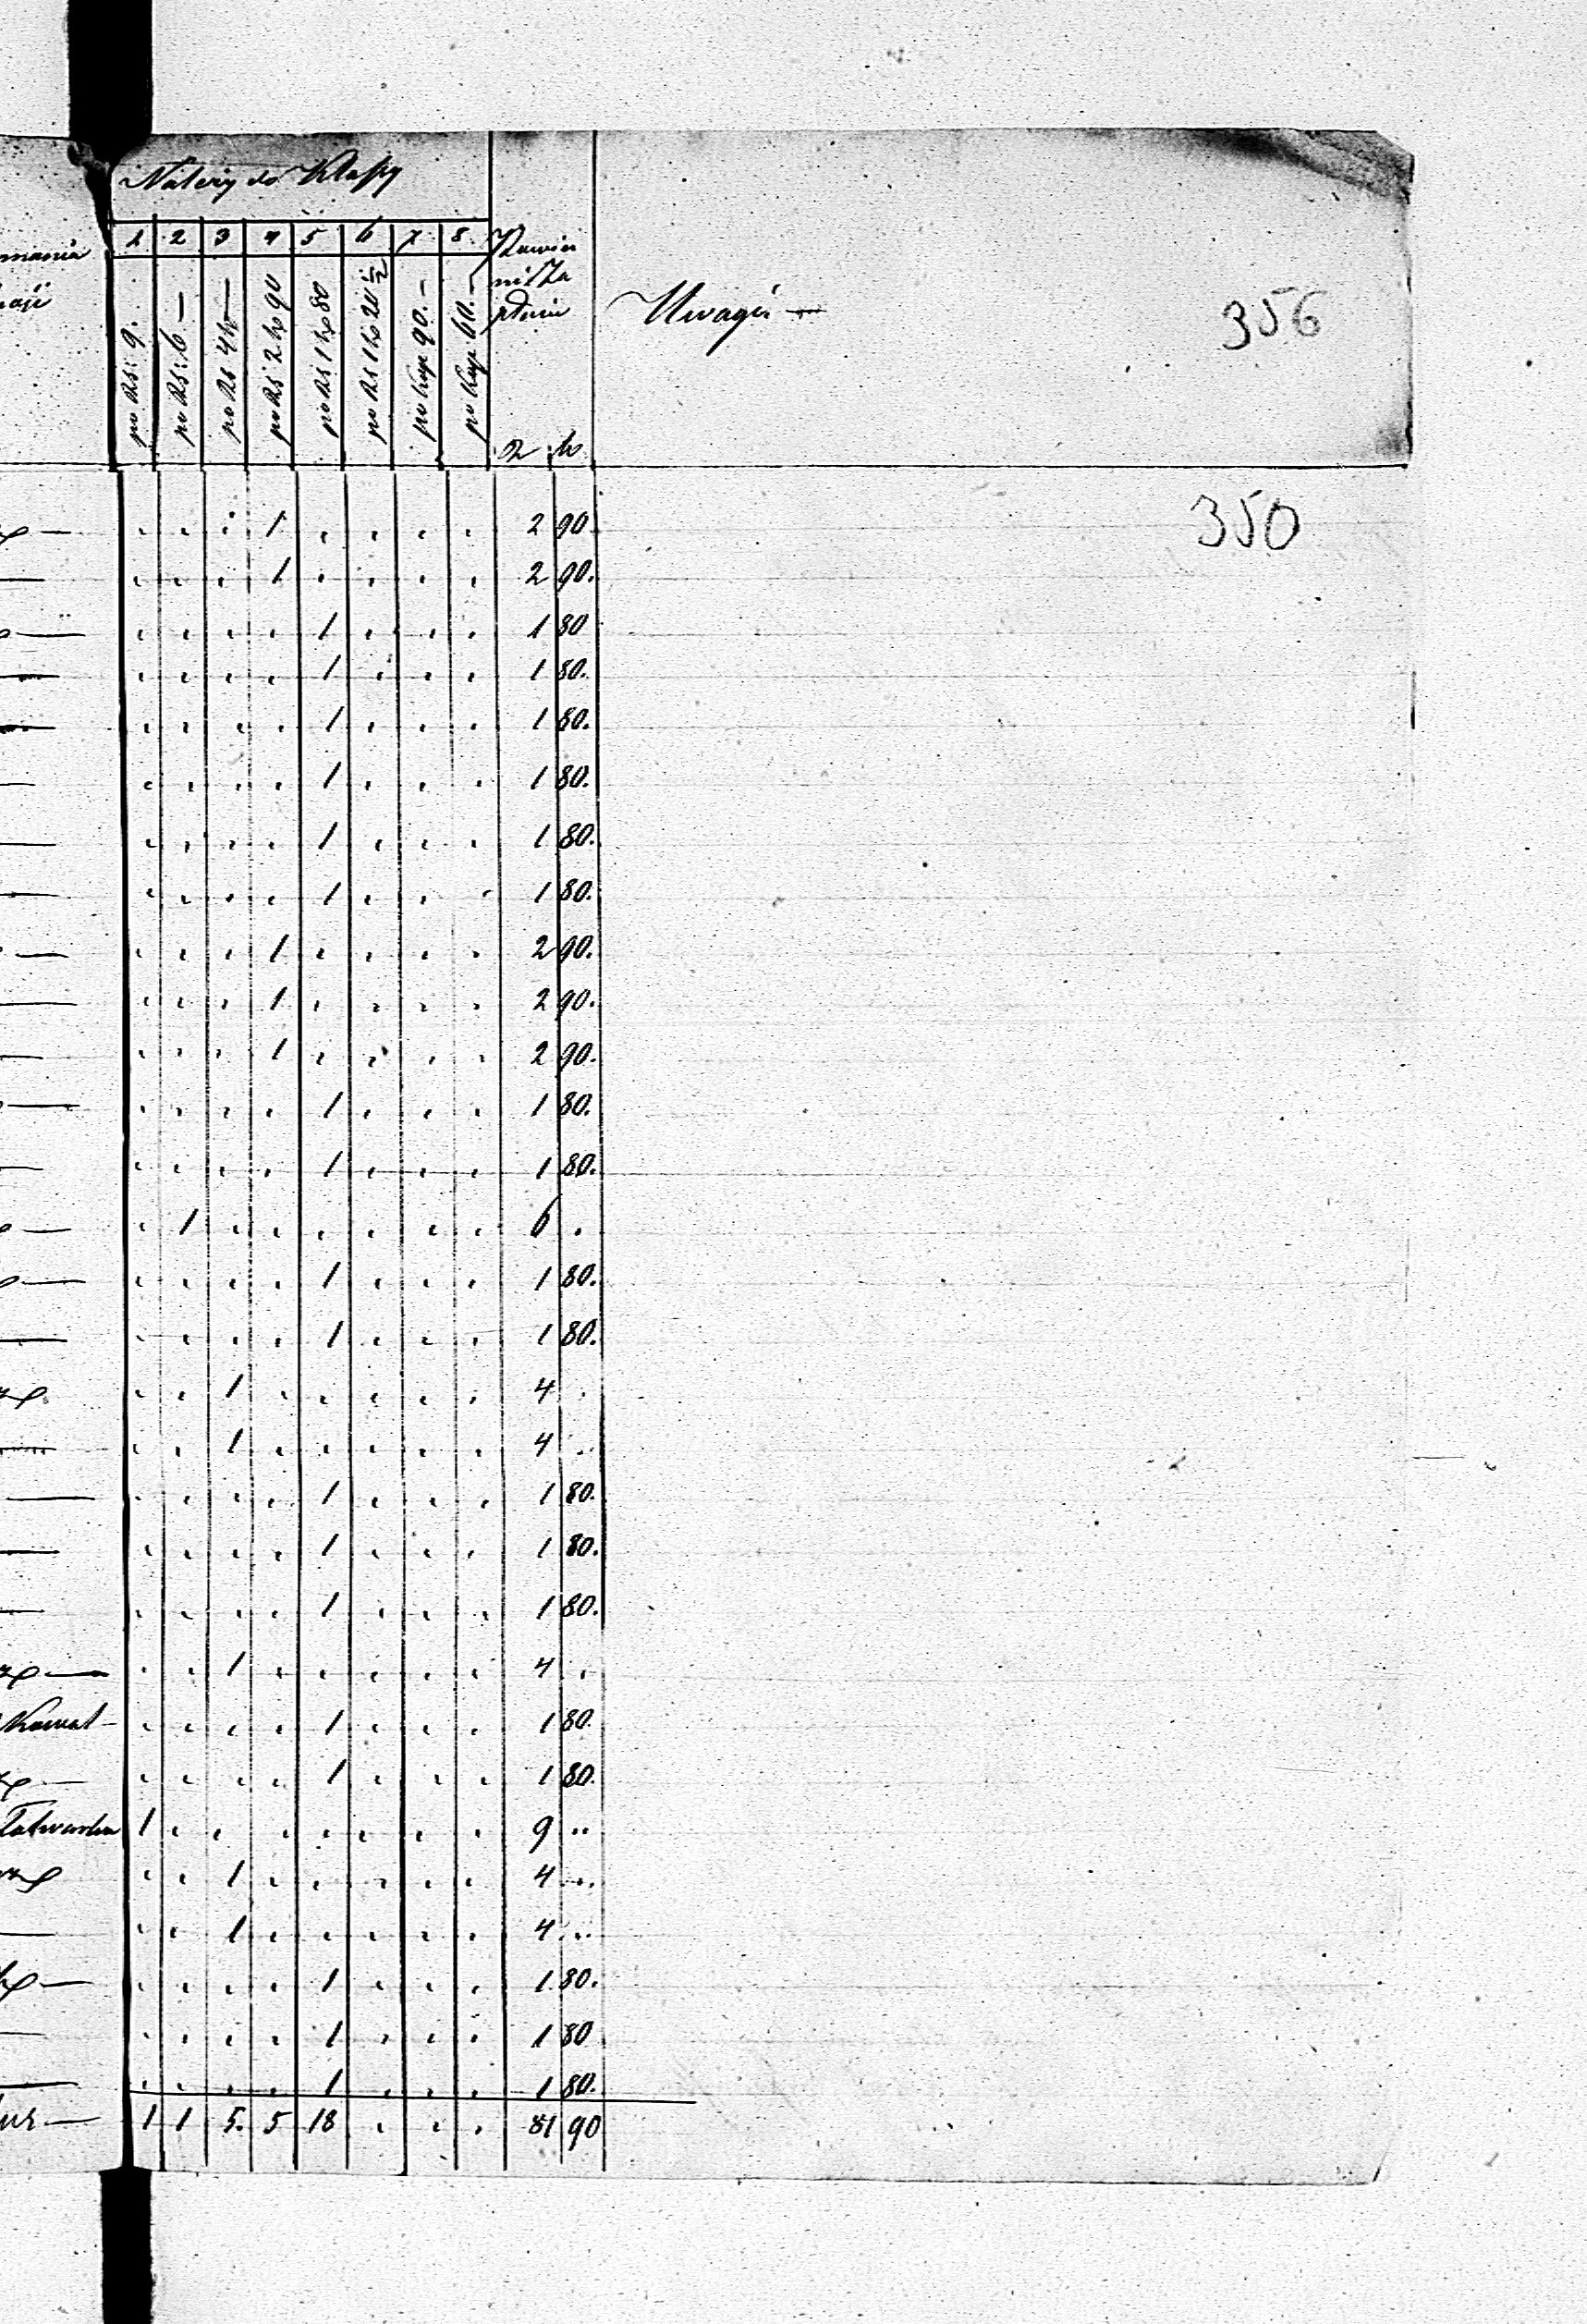 Należy do Klassy
1 2 3 4 5 6 7 8
po Rs: 9. po Rs: 6 — po Rs 4 — po Rs 2 kp 90 po Rs 1 kp 80 po Rs 1 kp 20 ½ po kop 90. — po kop 60. —
Powin
ni Za
Uwagi —
356
R k
350
1 2 90.
1 2 90.
1 1 80
1 1 80.
1 1 80.
1 1 80.
1 1 80.
1 1 80.
1 2 90.
1 2 90.
1 2 90.
1 1 80.
1 1 80.
1 6 .
1 1 80.
1 1 80.
1 4 .
1 4 ..
1 1 80.
1 1 80.
1 1 80.
1 4 .
Kowal — 1 1 80.
1 1 80.
1 9 ..
1 4 ..
1 4 ..
1 1 80.
1 1 80
1 1 80.
1 1 5. 5 18 81 90